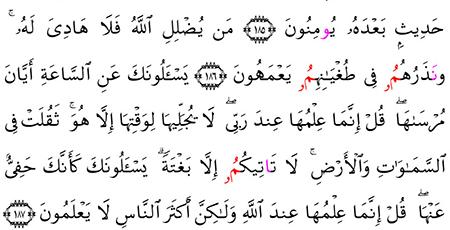 حَدِيثِۭ بَعْدَهُۥ يُومِنُونَ ۝١٨٥ مَن يُضْلِلِ ٱللَّهُ فَلَا هَادِىَ لَهُۥۚ
وَنَذَرُهُمُۥ فِى طُغْيَـٰنِهِمُۥ يَعْمَهُونَ ۝١٨٦ يَسْـَٔلُونَكَ عَنِ ٱلسَّاعَةِ أَيَّانَ
مُرْسَىٰهَاۖ قُلْ إِنَّمَا عِلْمُهَا عِندَ رَبِّىۖ لَا يُجَلِّيهَا لِوَقْتِهَا إِلَّا هُوَۚ ثَقُلَتْ فِى
ٱلسَّمَـٰوَٰتِ وَٱلْأَرْضِۚ لَا تَاتِيكُمُۥ إِلَّا بَغْتَةًۗ يَسْـَٔلُونَكَ كَأَنَّكَ حَفِىٌّ
عَنْهَاۖ قُلْ إِنَّمَا عِلْمُهَا عِندَ ٱللَّهِ وَلَـٰكِنَّ أَكْثَرَ ٱلنَّاسِ لَا يَعْلَمُونَ ۝١٨٧